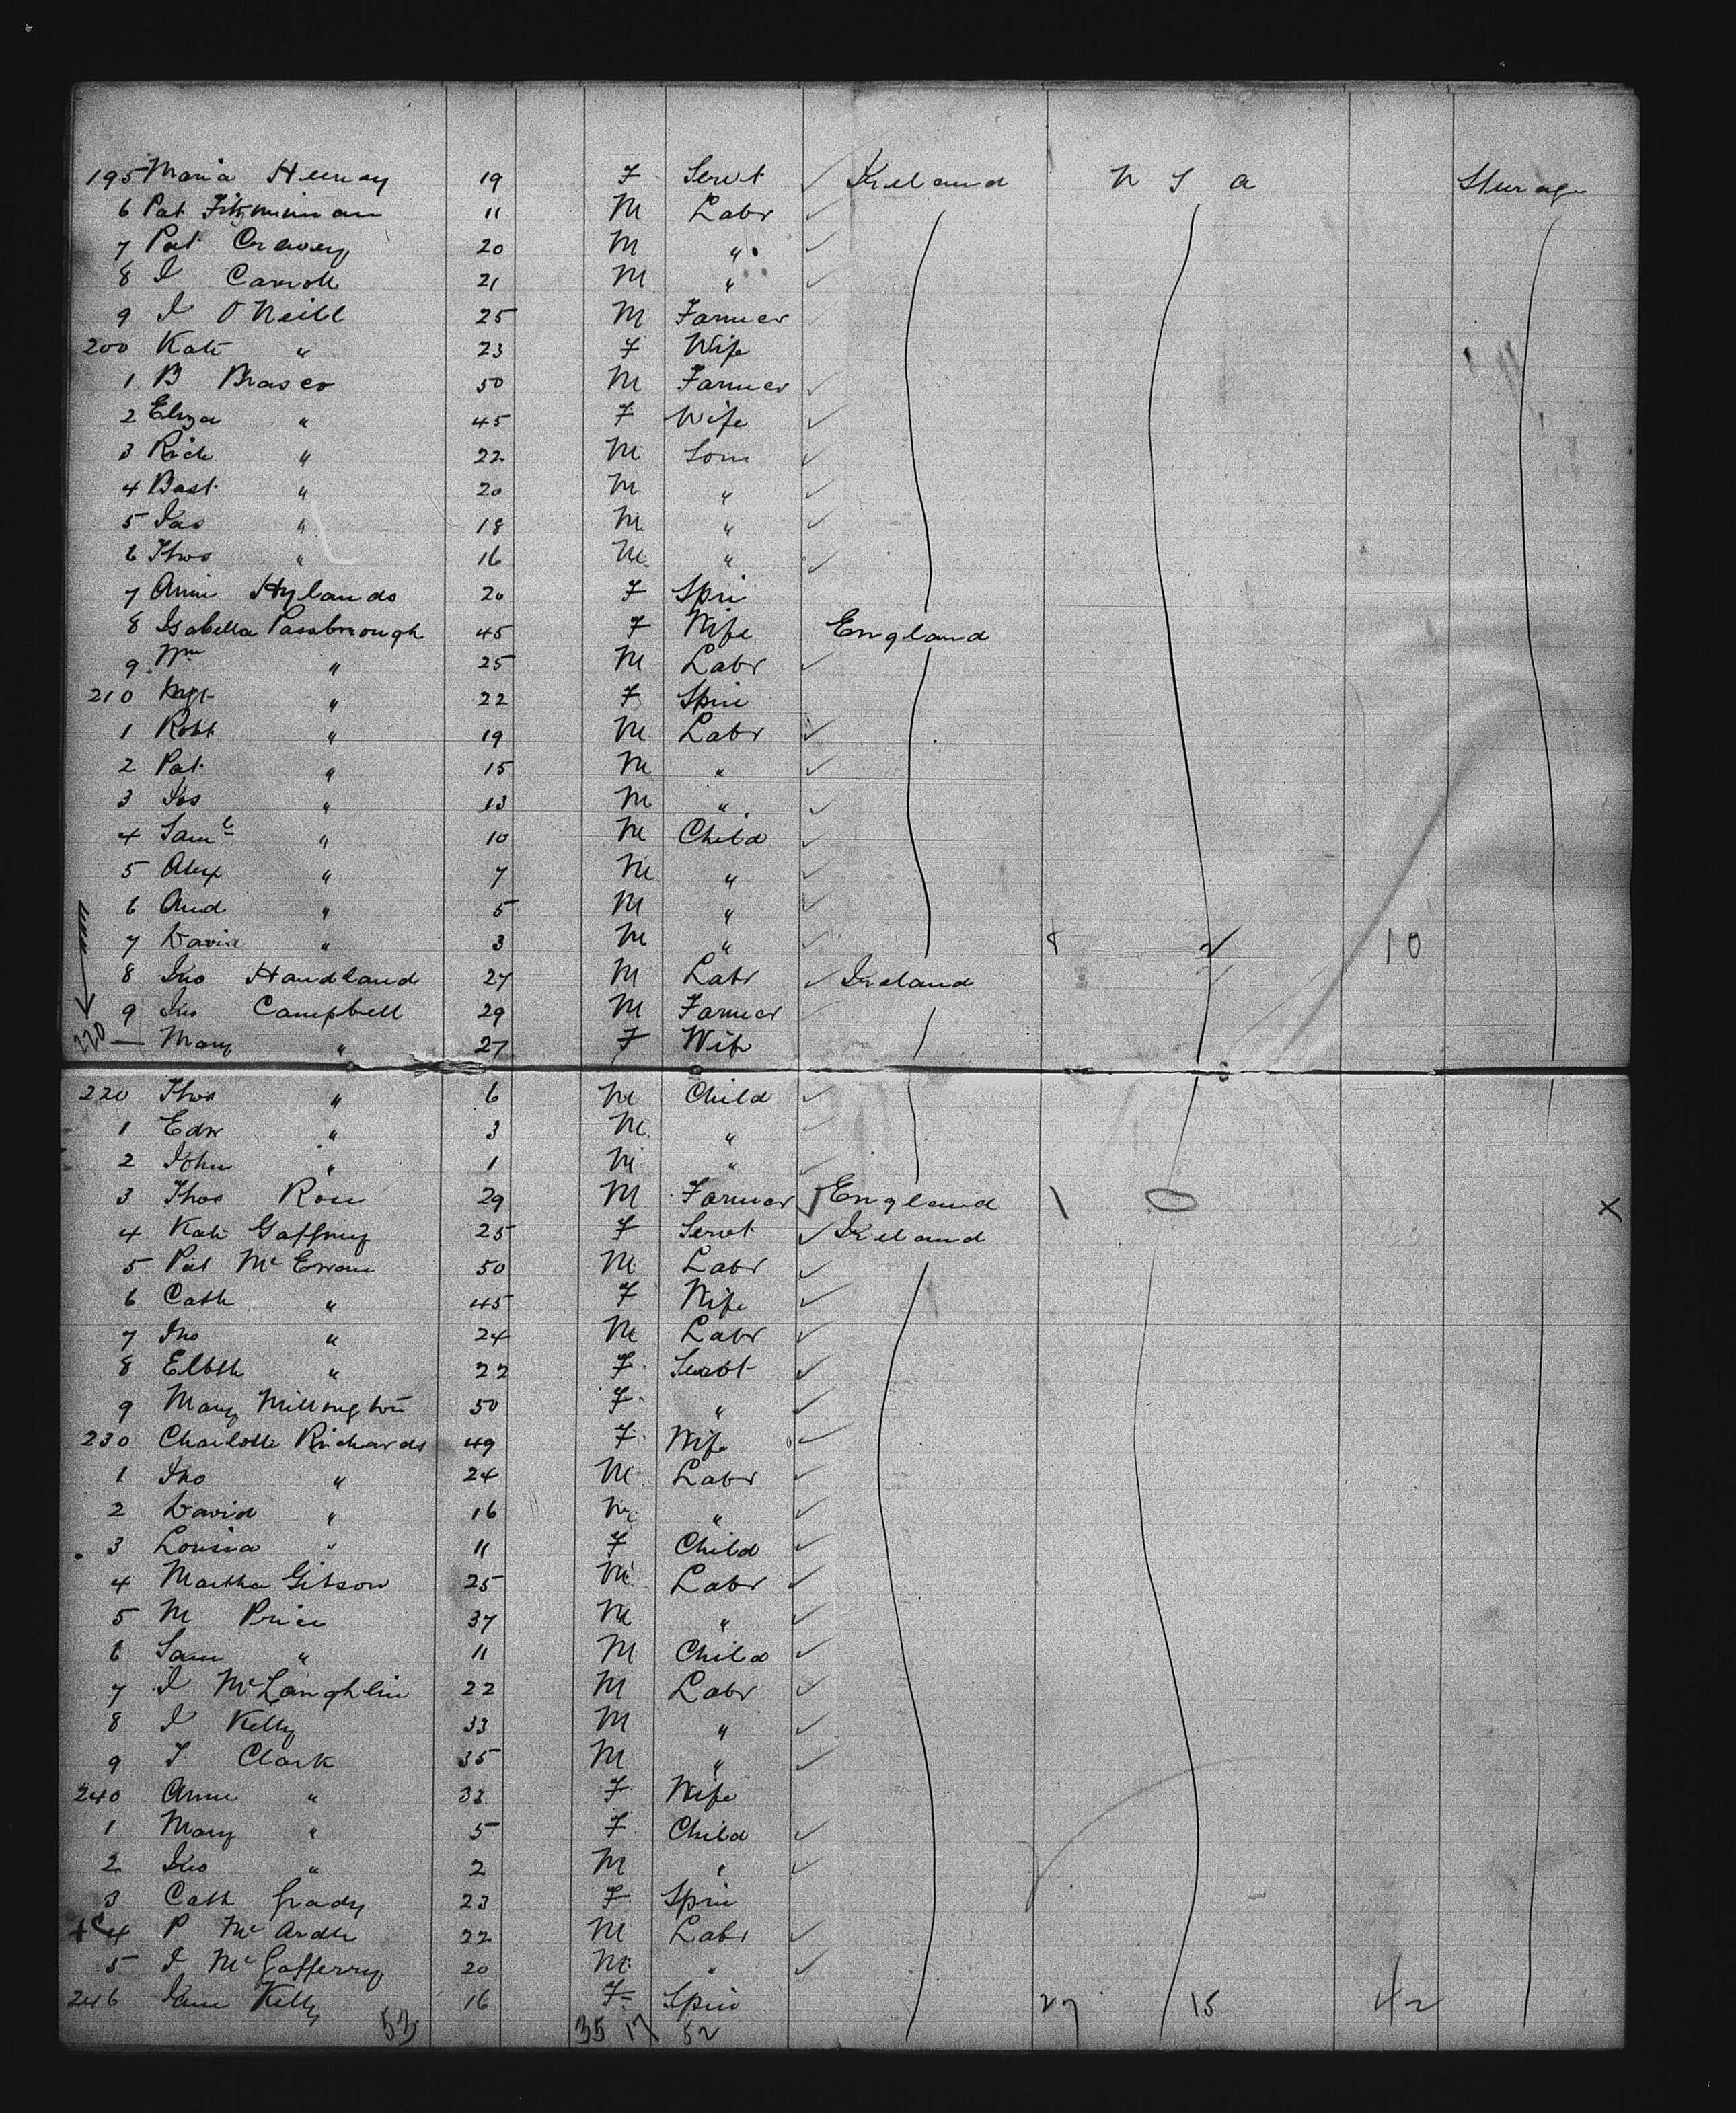 195 Maria Heenay 19 F Servt ✓ Ireland U S a Steerage
6 Pat Fitzsimmian 11 M Labr ✓
7 Pat Creavey 20 M " ✓
8 J Carroll 21 M " ✓
9 J O'Neill 25 M Farmer
200 Kate " 23 F Wife
1 B Brasco 50 M Farmer ✓
2 Eliza " 45 F Wife ✓
3 Rich " 22 M Son ✓
4 Bast " 20 M " ✓
5 Jas " 18 M " ✓
6 Thos " 16 M " ✓
7 Annie Hylands 20 F Spin
8 Isabella Passbrough 45 F Wife England
9 Wm " 25 M Labr ✓
210 Mgt " 22 F Spin
1 Robt " 19 M Labr ✓
2 Pat " 15 M " ✓
3 Jos " 13 M " ✓
4 Saml " 10 M Child ✓
5 Alex " 7 M " ✓
6 And " 5 M " ✓
7 David " 3 M " ✓ 8 2 10
8 Jno Handland 27 M Labr ✓ Ireland
9 Jno Campbell 29 M Farmer
220 — Mary " 27 F Wife
220 Thos " 6 M Child ✓
1 Edw " 3 M "
2 John " 1 M "
3 Thos Rose 29 M Farmer ✓ England 1 0 X
4 Kate Gaffney 25 F Servt ✓ Ireland
5 Pat McEwan 50 M Labr ✓
6 Cath " 45 F Wife ✓
7 Jno " 24 M Labr ✓
8 Elbth " 22 F Servt ✓
9 Mary Millington 50 F " ✓
230 Charlotte Richards 49 F Wife ✓
1 Jno " 24 M Labr ✓
2 David " 16 M " ✓
3 Louisa " 11 F Child ✓
4 Martha Gibson 25 M Labr ✓
5 M Price 37 M " ✓
6 Sam " 11 M Child ✓
7 J McLaughlin 22 M Labr ✓
8 J Kelly 33 M " ✓
9 T Clark 35 M " ✓
240 Anne " 33 F Wife
1 Mary " 5 F Child ✓
2 Jno " 2 M " ✓
3 Cath Grady 23 F Spin
4 P McArdle 22 M Labr ✓
5 J McGafferry 20 M " ✓
246 Jane Kelly 16 F Spin 27 15 42
53 35 17 52